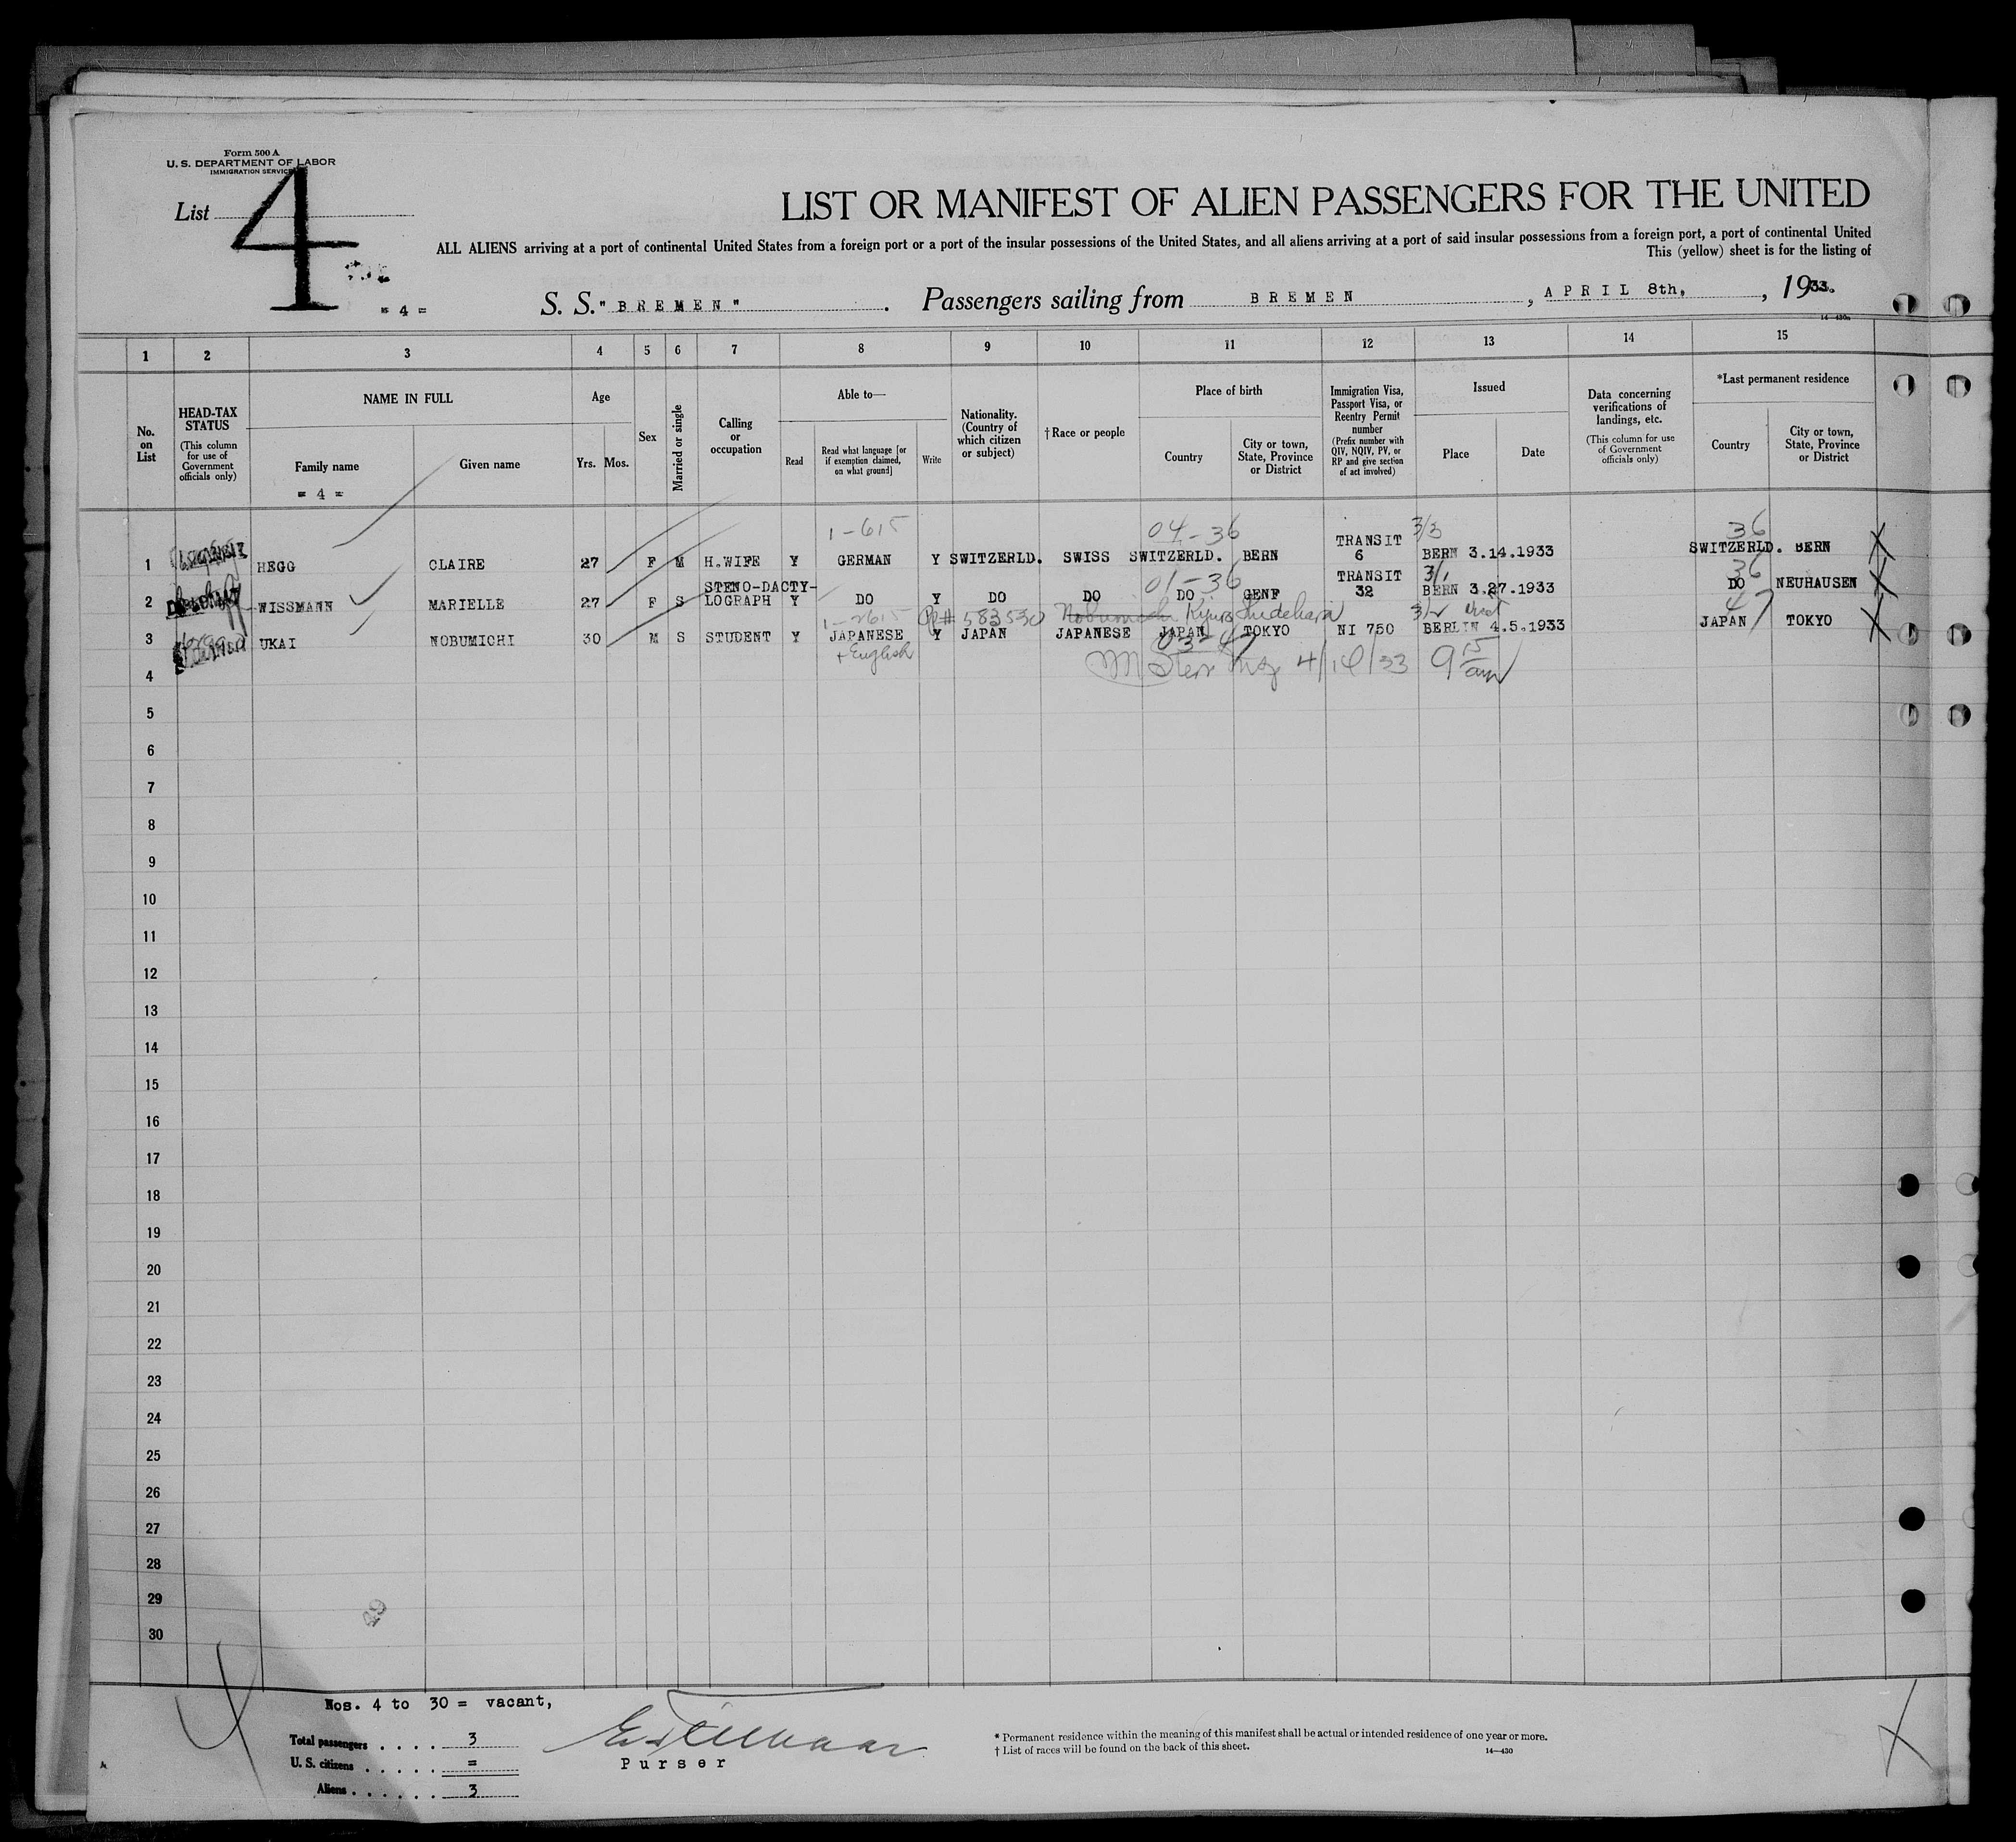 Form 500 A
U. S. DEPARTMENT OF LABOR
IMMIGRATION SERVICE
List 4
LIST OR MANIFEST OF ALIEN PASSENGERS FOR THE UNITED
ALL ALIENS arriving at a port of continental United States from a foreign port or a port of the insular possessions of the United States, and all aliens arriving at a port of said insular possessions from a foreign port, a port of continental United
This (yellow) sheet is for the listing of
= 4 = S. S. "BREMEN". Passengers sailing from BREMEN, APRIL 8th, 1933.
14-430a
1 2 3 4 5 6 7 8 9 10 11 12 13 14 15
No. on List
HEAD-TAX STATUS
(This column for use of Government officials only)
NAME IN FULL
Family name
Given name
= 4 =
Age
Yrs. Mos.
Sex
Married or single
Calling or occupation
Able to—
Read
Read what language [or if exemption claimed, on what ground]
Write
Nationality. (Country of which citizen or subject)
†Race or people
Place of birth
Country
City or town, State, Province or District
Immigration Visa, Passport Visa, or Reentry Permit number
(Prefix number with QIV, NQIV, PV, or RP and give section of act involved)
Issued
Place
Date
Data concerning verifications of landings, etc.
(This column for use of Government officials only)
*Last permanent residence
Country
City or town, State, Province or District
1-615 04-36 3/3 36
1 HEGG CLAIRE 27 F M H.WIFE Y GERMAN Y SWITZERLD. SWISS SWITZERLD. BERN TRANSIT 6 BERN 3.14.1933 SWITZERLD. BERN
01-36 3/1 36
2 WISSMANN MARIELLE 27 F S STENO-DACTY-LOGRAPH Y DO Y DO DO DO GENF TRANSIT 32 BERN 3.27.1933 DO NEUHAUSEN
1-2615 # 583530 Nobumichi 47
3 UKAI NOBUMICHI 30 M S STUDENT Y JAPANESE Y JAPAN JAPANESE JAPAN TOKYO NI 750 BERLIN 4.5.1933 JAPAN TOKYO
+ English 03-47
4/14/33 9 15 am
4
5
6
7
8
9
10
11
12
13
14
15
16
17
18
19
20
21
22
23
24
25
26
27
28
29
30
49
Nos. 4 to 30 = vacant,
Total passengers . . . . 3
U. S. citizens . . . . . =
Aliens . . . . . . 3
Purser
* Permanent residence within the meaning of this manifest shall be actual or intended residence of one year or more.
† List of races will be found on the back of this sheet.
14-430